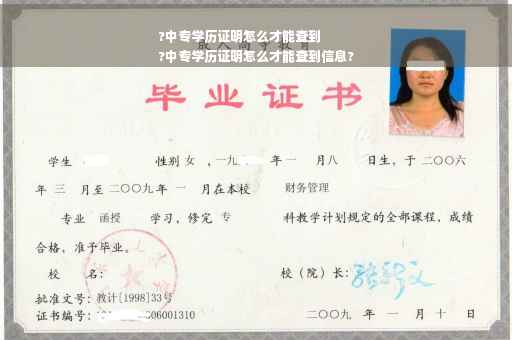 ?中专学历证明怎么才能查到
成人高等教育
?中专学历证明怎么才能查到信息?
毕业证书
学生 性别 女 ，一九 年 一 月八 日生，于 二〇〇六
年 三 月至 二〇〇九 年 一 月在本校 财务管理
专业 函授 学习，修完 专 科教学计划规定的全部课程，成绩
合格，准予毕业。
校 名： 校（院）长：
批准文号：教计[1998]33号
证书编号：1 606001310 二〇〇九 年 一 月 十 日